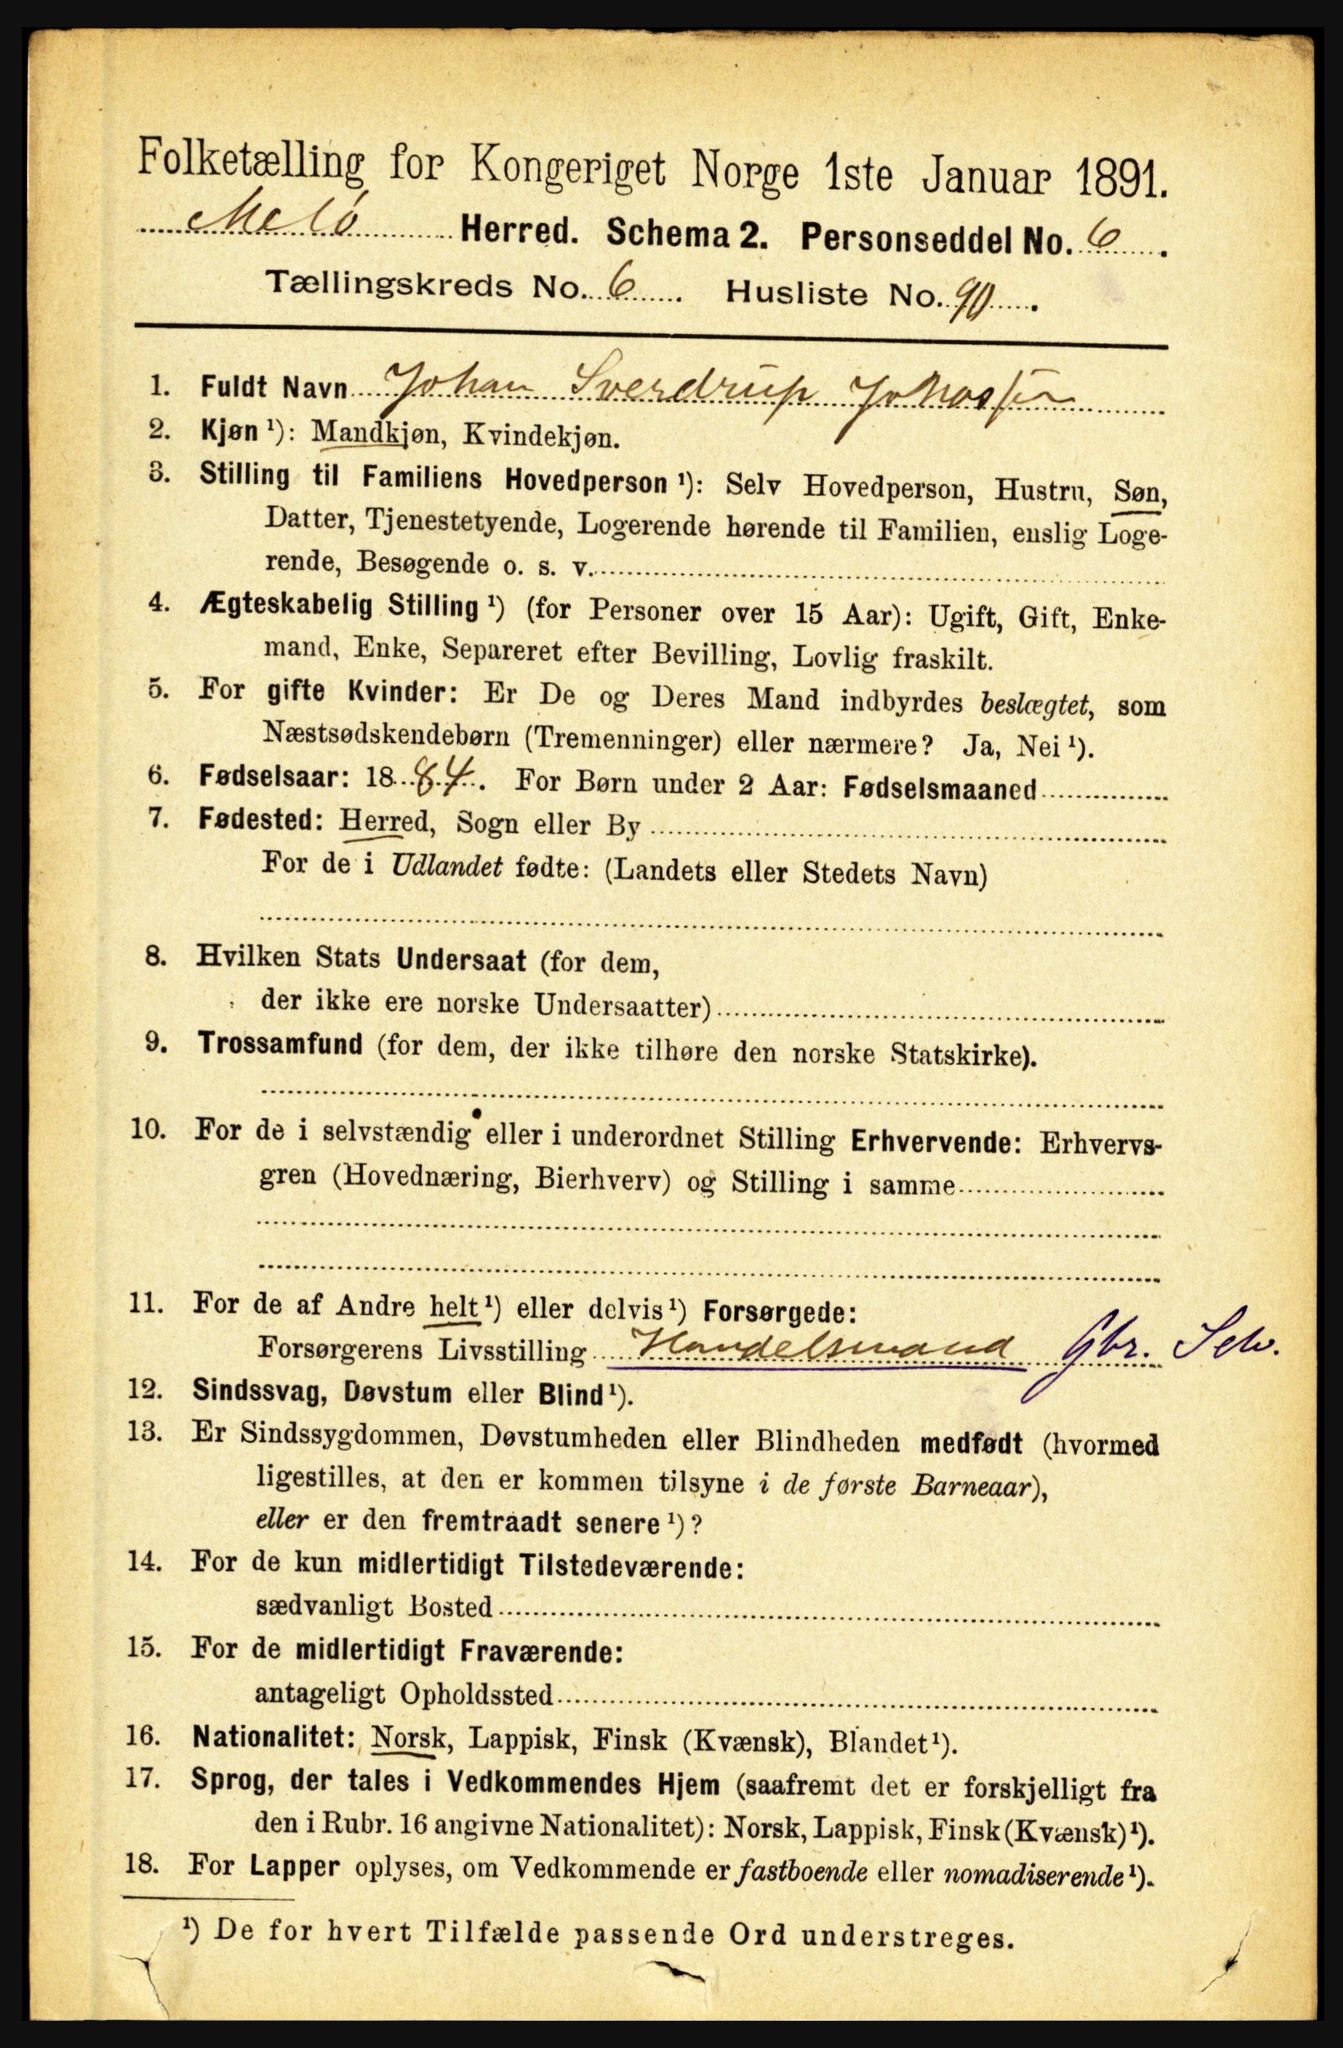 Folketælling for Kongeriget Norge 1ste Januar 1891.
Melø Herred. Schema 2. Personseddel No. 6.
Tællingskreds No. 6. Husliste No. 90.
1. Fuldt Navn Johan Sverdrup
2. Kjøn ¹): Mandkjøn, Kvindekjøn.
3. Stilling til Familiens Hovedperson ¹): Selv Hovedperson, Hustru, Søn,
Datter, Tjenestetyende, Logerende hørende til Familien, enslig Loge-
rende, Besøgende o. s. v.
4. Ægteskabelig Stilling ¹) (for Personer over 15 Aar): Ugift, Gift, Enke-
mand, Enke, Separeret efter Bevilling, Lovlig fraskilt.
5. For gifte Kvinder: Er De og Deres Mand indbyrdes beslægtet, som
Næstsødskendebørn (Tremenninger) eller nærmere? Ja, Nei ¹).
6. Fødselsaar: 1884. For Børn under 2 Aar: Fødselsmaaned
7. Fødested: Herred, Sogn eller By
For de i Udlandet fødte: (Landets eller Stedets Navn)
8. Hvilken Stats Undersaat (for dem,
der ikke ere norske Undersaatter)
9. Trossamfund (for dem, der ikke tilhøre den norske Statskirke).
10. For de i selvstændig eller i underordnet Stilling Erhvervende: Erhvervs-
gren (Hovednæring, Bierhverv) og Stilling i samme
11. For de af Andre helt ¹) eller delvis ¹) Forsørgede:
Forsørgerens Livsstilling Handelsmand Gbr. Selv.
12. Sindssvag, Døvstum eller Blind ¹).
13. Er Sindssygdommen, Døvstumheden eller Blindheden medfødt (hvormed
ligestilles, at den er kommen tilsyne i de første Barneaar),
eller er den fremtraadt senere ¹)?
14. For de kun midlertidigt Tilstedeværende:
sædvanligt Bosted
15. For de midlertidigt Fraværende:
antageligt Opholdssted
16. Nationalitet: Norsk, Lappisk, Finsk (Kvænsk), Blandet ¹).
17. Sprog, der tales i Vedkommendes Hjem (saafremt det er forskjelligt fra
den i Rubr. 16 angivne Nationalitet): Norsk, Lappisk, Finsk (Kvænsk) ¹).
18. For Lapper oplyses, om Vedkommende er fastboende eller nomadiserende ¹).
¹) De for hvert Tilfælde passende Ord understreges.